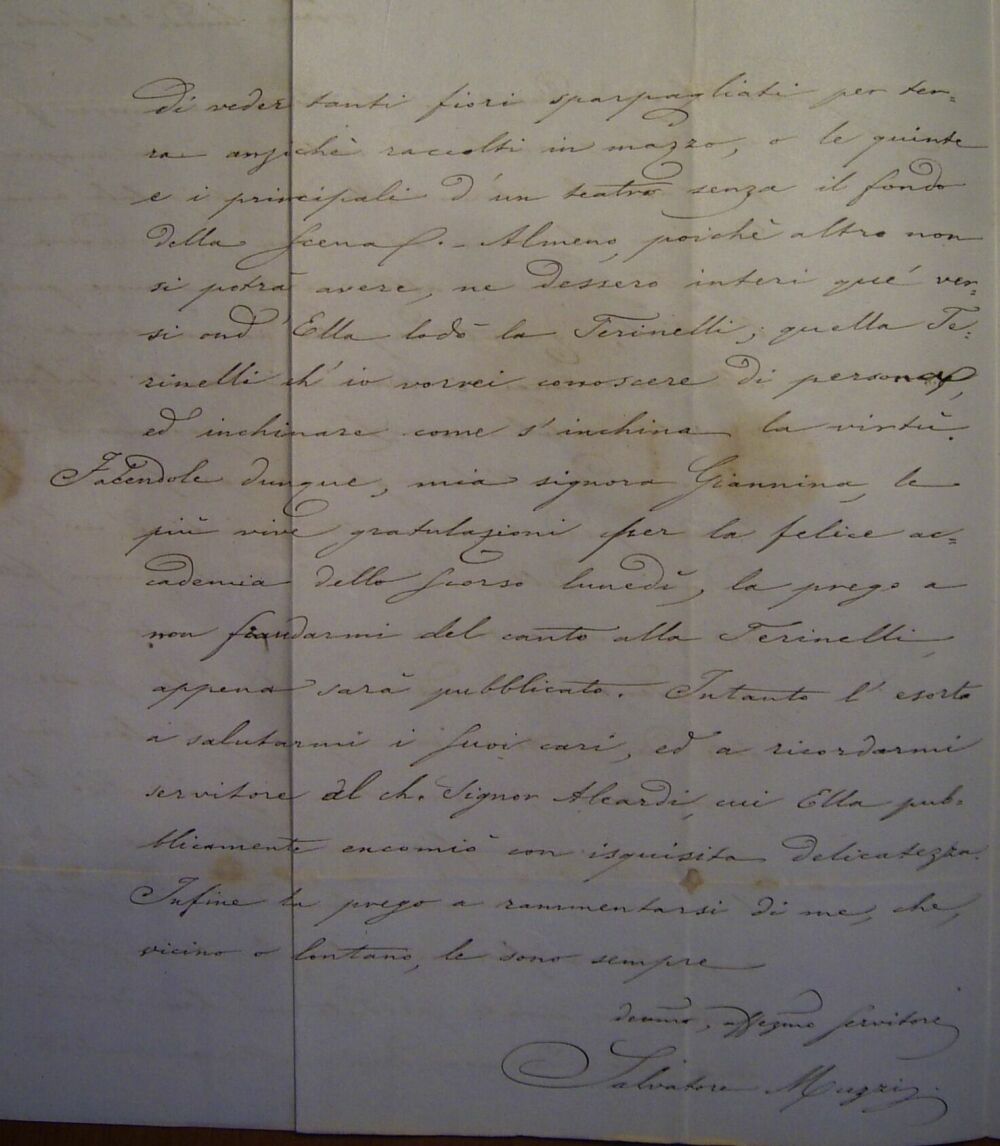 di veder tanti fiori sparpagliati per ter=
ra anzichè raccolti in mazzo, o le quinte
e i principali d'un teatro senza il fondo
della scena. - Almeno, poichè altro non
si potrà avere, ne dessero interi que' ver=
si ond'Ella lodò la Ferinelli; quella Fe=
rinelli ch'io vorrei conoscere di persona,
ed inchinare come s'inchina la virtù.
Facendole dunque, mia signora Giannina, le
più vive gratulazioni per la felice ac=
cademia dello scorso lunedì, la prego a
non fraudarmi del canto alla Ferinelli,
appena sarà pubblicato. Intanto l'esorto
a salutarmi i suoi cari, ed a ricordarmi
servitore al ch. Signor Aleardi, cui Ella pub=
blicamente encomiò con isquisita delicatezza.
Infine la prego a rammentarsi di me, che,
vicino o lontano, le sono sempre
devmo, affezmo servitore
Salvatore Muzzi.